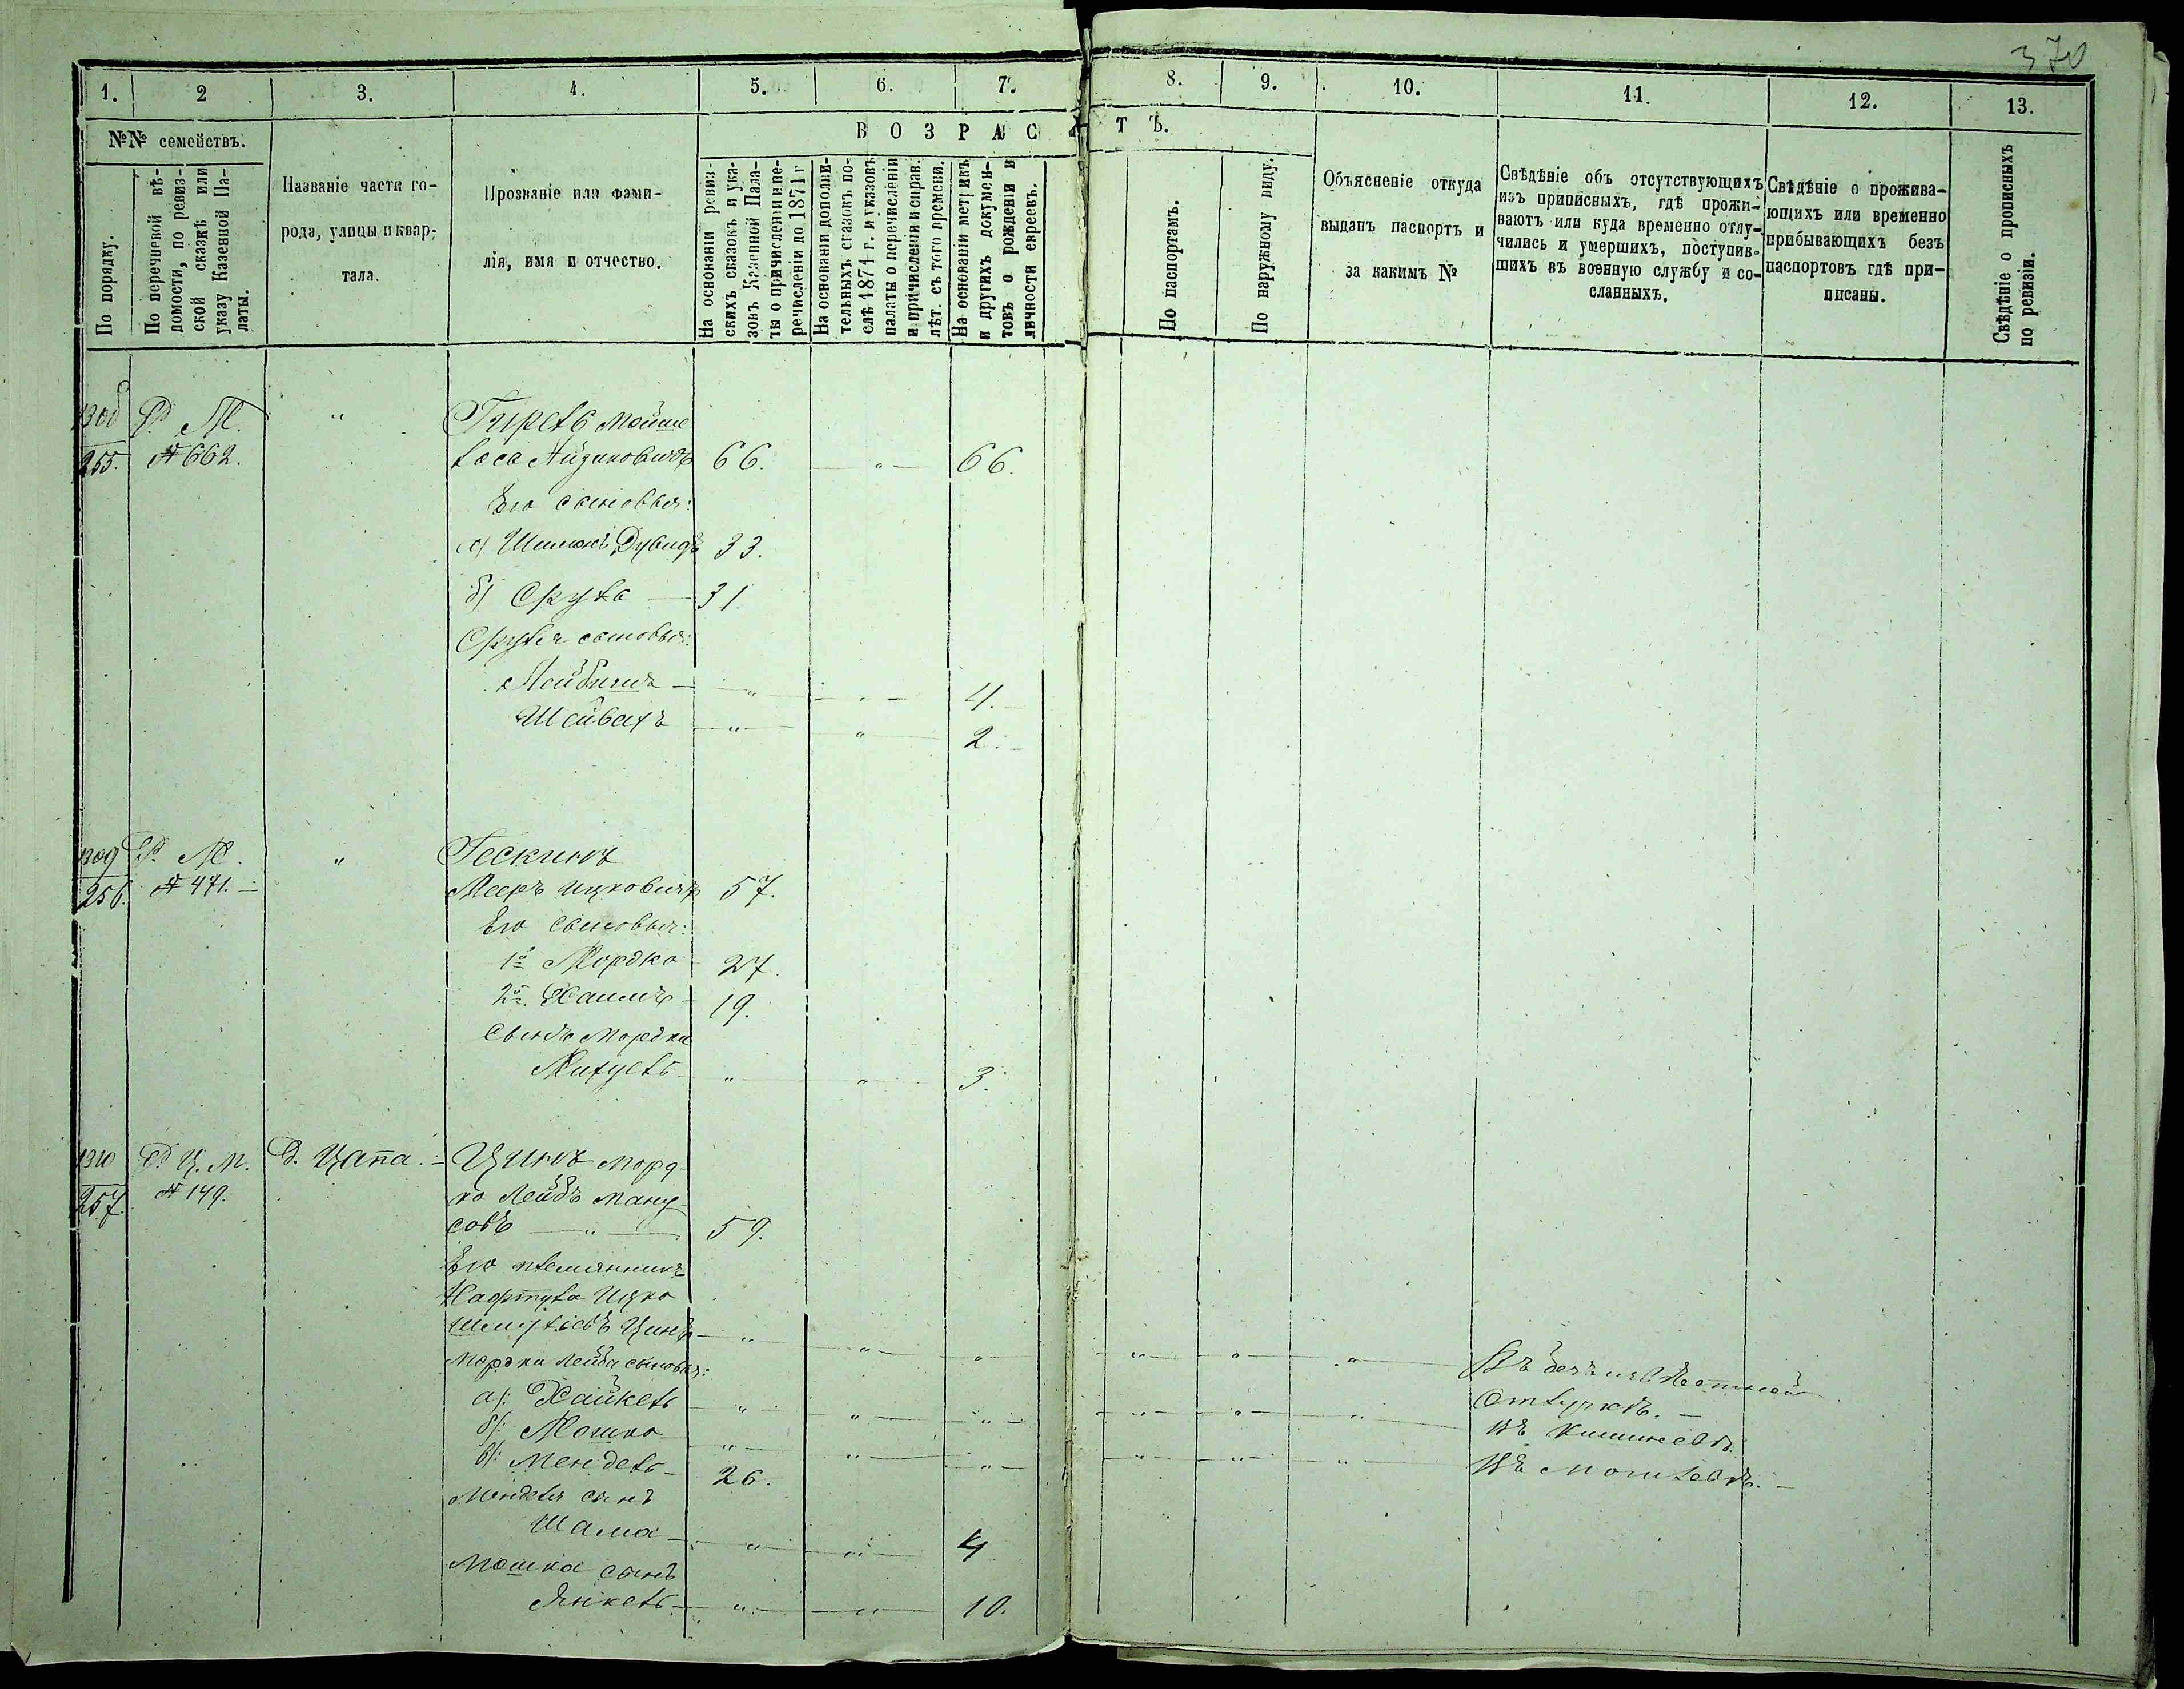 370
1. 2 3. 4. 5. 6. 7. 8. 9. 10. 11. 12. 13.
№№ семействъ.
ВОЗРАСТЪ.
По порядку.
По перечневой вѣ-
домости, по ревиз-
ской сказкѣ или
указу Казенной Па-
латы.
Названіе части го-
рода, улицы и квар-
тала.
Прозваніе или фами-
лія, имя и отчество.
На основаніи ревиз-
скихъ сказокъ и ука-
зовъ Казенной Пала-
ты о причисленіи и пе-
речисленіи до 1871 г.
На основаніи дополни-
тельныхъ сказокъ по-
слѣ 1874 г. и указовъ
палаты о перечисленіи
и причисленіи и справ.
лѣт. съ того времени.
На основаніи метрикъ
и другихъ докумен-
товъ о рожденіи и
личности евреевъ.
По паспортамъ.
По наружному виду.
Объясненіе откуда
выданъ паспортъ и
за какимъ №
Свѣдѣніе объ отсутствующихъ
изъ приписныхъ, гдѣ прожи-
ваютъ или куда временно отлу-
чились и умершихъ, поступив-
шихъ въ военную службу и со-
сланныхъ.
Свѣдѣніе о прожива-
ющихъ или временно
прибывающихъ безъ
паспортовъ гдѣ при-
писаны.
Свѣдѣніе о прописныхъ
по ревизіи.
1308 Р. М. "
255. № 662. 66. " 66.
Его сыновья:
а) Дувидъ 33.
б) Сруль — 31.
Сруля сыновья:
Лейбишъ — " — " — 4.
Шейвахъ — " — " — 2.
1309 Р. М. " Гескинъ
256. № 471. Мееръ Ицковичъ 57.
Его сыновья:
1й Мордко 27.
2й Хаимъ 19.
Сынъ Мордки
" — " — 3.
1310 Р. Ц. М. Цапа. Цинъ Морд-
257. № 149. ко ЛейбъМану
совъ — " — 59.
Его племянникъ
Нафтула Ицко
Шмулевъ Цинъ — " — " — " — " — " — " — Въ безъизвѣстной
Мордки Лейба сыновья: отлучкѣ.
а): Хайкель — " — " — " — " — " — " — Въ Кишиневѣ.
б): Мошко — " — " — " — " — " — " — Въ Могилевѣ.
в): Мендель — 26.
Менделя сынъ
Шама — " — " — 4
Мошка сынъ
Янкель — " — " — 10.